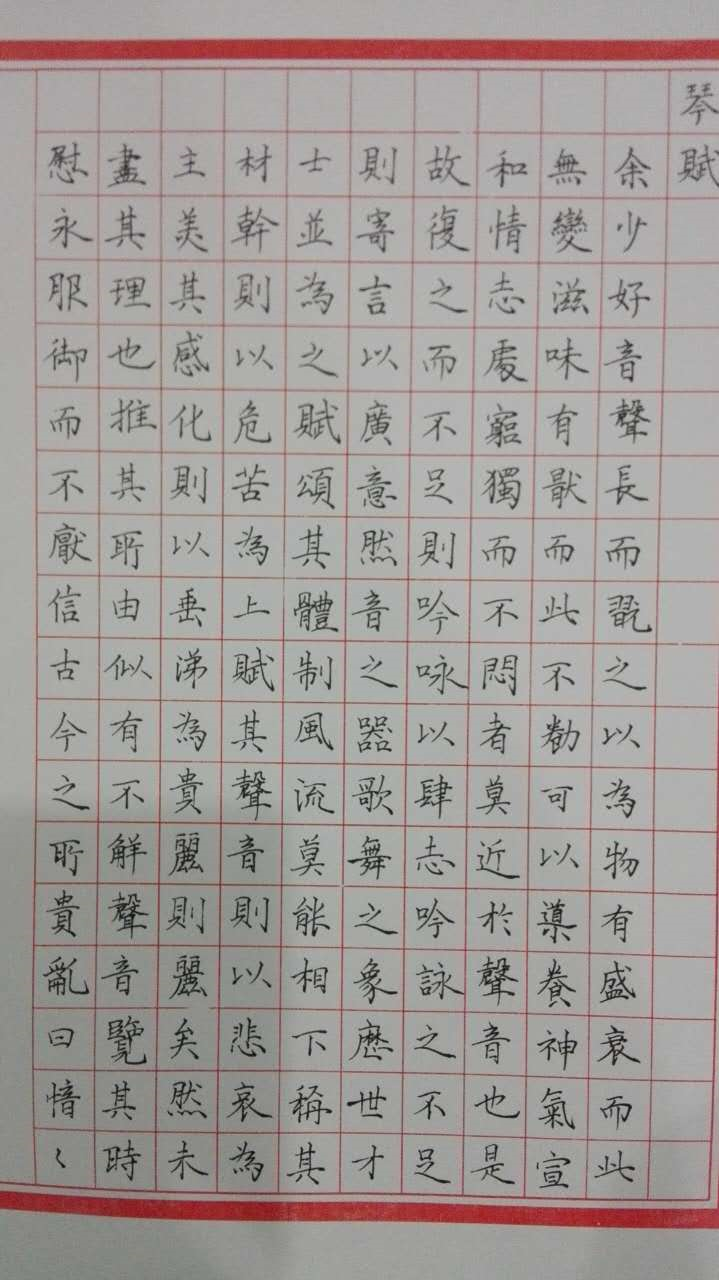 琴賦
余少好音聲長而翫之以為物有盛衰而此
無變滋味有猒而此不勌可以導養神氣宣
和情志處窮獨而不悶者莫近於聲音也是
故復之而不足則吟咏以肆志吟詠之不足
則寄言以廣意然音之器歌舞之象歷世才
士並為之賦頌其體制風流莫能相下稱其
材幹則以危苦為上賦其聲音則以悲哀為
主美其感化則以垂涕為貴麗則麗矣然未
盡其理也推其所由似有不解聲音覽其時
慰永服御而不厭信古今之所貴亂曰愔〻